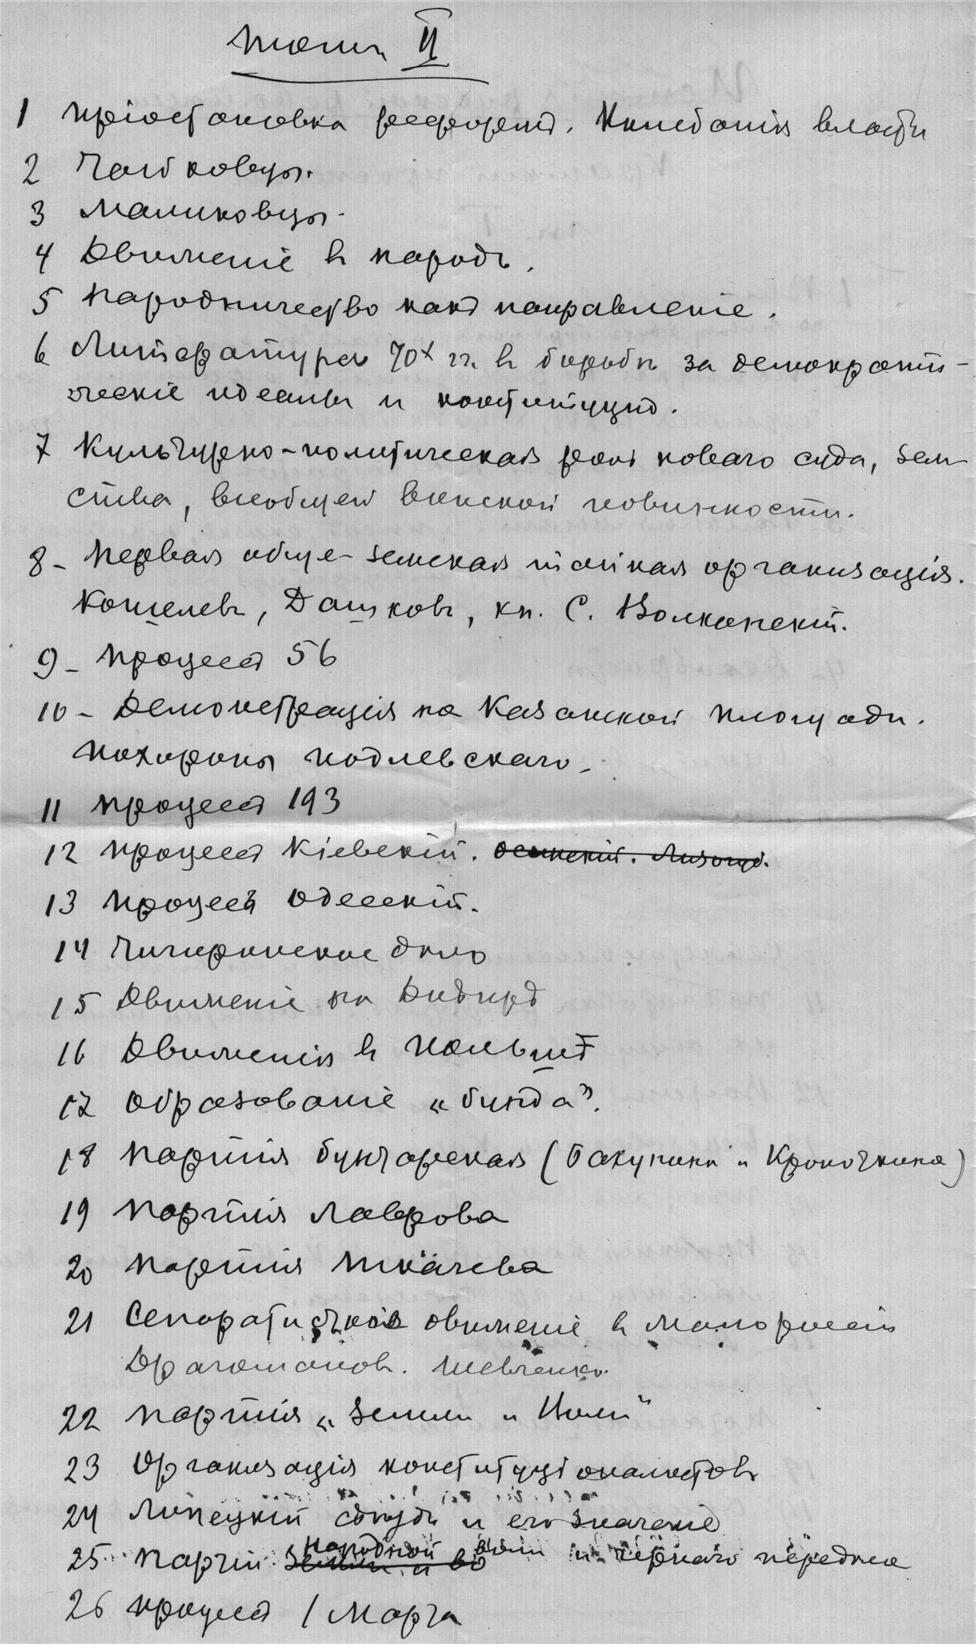 Томъ II
1 Пріостановка реформъ. Колебанія власти
2 Чайковцы.
3 Маликовцы.
4 Движеніе в народъ.
5 Народничество какъ направленіе.
6 Литература 70х гг. в борьбѣ за демократи-
ческіе идеалы и конституцію.
7 Культурно-политическая роль новаго суда, зем
ства, всеобщей воинской повинности.
8 - Первая обще-земская тайная организація.
Кошелевъ, Дашковъ, кн. С. Волконскій.
9 - Процессъ 50
10 - Демонстрація на Казанской площади.
Похороны Подлевскаго.
11 Процессъ 193
12 Процессъ Кіевскій. Осинскій. Лизогубъ.
13 Процессъ Одесскій.
14 Чигиринское дѣло
15 Движеніе на
16 Движенія в Польшѣ
17 Образованіе „Бунда”.
18 Партія бунтарская (Бакунина и Кропоткина)
19 Партія Лаврова
20 Партія Ткачева
21 Сепаратистское движеніе в Малороссіи
Драгомановъ. Шевченко.
22 Партія „Земли и Воли”
23 Организація конституціоналистовъ
24 Липецкій съѣздъ и его значеніе
25 Партіи Земли и Во Народной воли и Чернаго передѣла
26 Процессъ 1 Марта